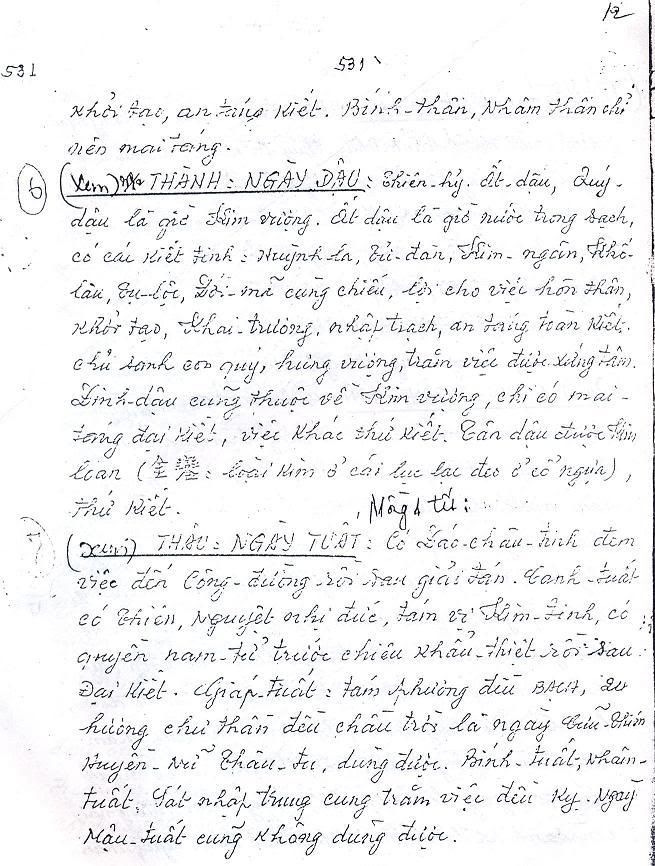 12
531 531
khởi tạo, an táng kiết. Bính-thân, Nhâm thân chỉ
nên mai táng.
6 (Xem) THÀNH: NGÀY DẬU: Thiên-hỷ. Ất-dậu, Quý-
dậu là giờ Kim vượng. Ất dậu là giờ nước trong sạch,
có cái kiết tinh: Huỳnh-la, Tử-đàn, Kim-ngân, Khố-
lâu, Tụ-lộc, Đới-mã cùng chiếu, lợi cho việc hôn thân,
khởi tạo, Khai-trương, nhập trạch, an táng toàn kiết.
chủ sanh con quý, hưng vượng, trăm việc được xứng tâm.
Đinh-dậu cũng thuộc về Kim vượng, chỉ có mai-
táng đại kiết, việc khác thứ kiết. Tân dậu được Kim
loan (金: loài kim ở cái lục lạc đeo ở cổ ngựa),
thứ kiết. Mồng 1 tú:
7 (xem) THÂU: NGÀY TUẤT: Có Đáo-châu-tinh đem
việc đến Công-đường rồi sau giải tán. Canh-tuất
có Thiên, Nguyệt nhị đức, tám vị Kim-tinh, có
quyền nam-tử trước chiêu khẩu-thiệt rồi sau
Đại Kiết. Giáp-tuất: tám phương đều BẠCH, 24
hướng chư thần đều chầu trời là ngày Cửu-thiên
Huyền-Nữ Thâu-tu, dùng được. Bính-tuất, Nhâm-
tuất, Sát nhập trung cung trăm việc đều kỵ. Ngày
Mậu-tuất cũng không dùng được.